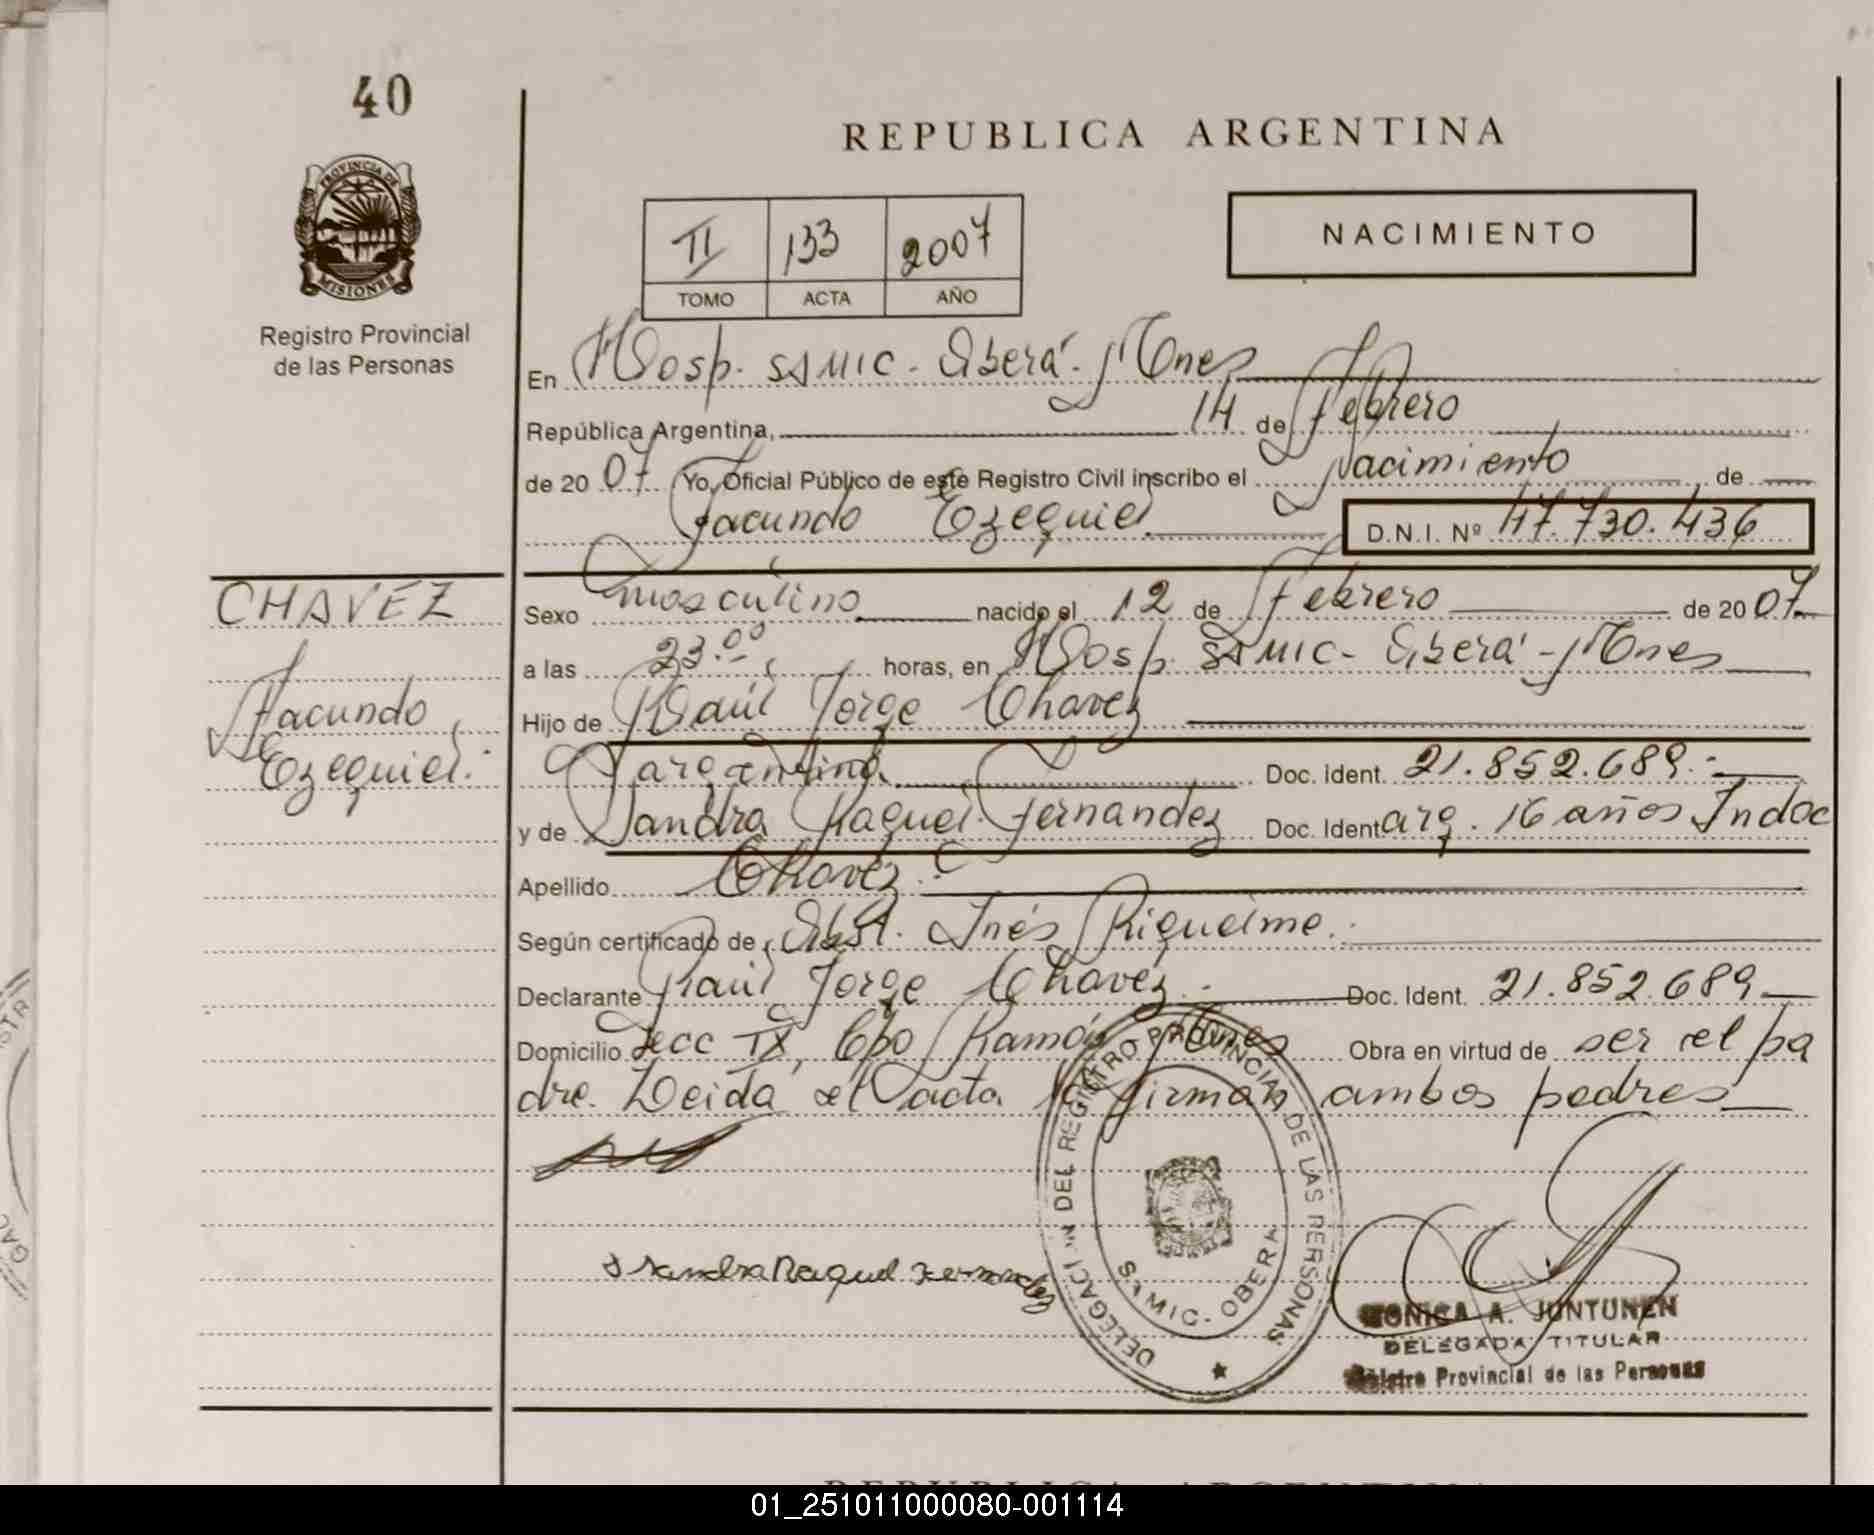 40
PROVINCIA DE
MISIONES
Registro Provincial
de las Personas
REPUBLICA ARGENTINA
II 133 2007
TOMO ACTA AÑO
NACIMIENTO
En Hosp. SAMIC - Oberá - Mnes
República Argentina, 14 de Febrero
de 2007 Yo, Oficial Público de este Registro Civil inscribo el nacimiento de
Facundo Ezequiel D.N.I. Nº 47.730.436
CHAVEZ
Facundo
Ezequiel.
Sexo masculino nacido el 12 de Febrero de 2007
a las 23.00 horas, en Hosp. SAMIC - Oberá - Mnes
Hijo de Raúl Jorge Chavez
argentina Doc. Ident. 21.852.689.-
y de Sandra Raquel Fernandez Doc. Ident arg. 16 años Indoc
Apellido Chavez.-
Según certificado de Obst. Inés Riquelme.-
Declarante Raúl Jorge Chavez.- Doc. Ident. 21.852.689
Domicilio Secc IX, Cpo Ramón, Mnes Obra en virtud de ser el pa
dre. Leida el acta la firman ambos padres
Sandra Raquel Fernandez
DELEGACION DEL REGISTRO PROVINCIAL DE LAS PERSONAS
SAMIC. OBERA
MONICA A. JUNTUNEN
DELEGADA TITULAR
Registro Provincial de las Personas
REPUBLICA ARGENTINA
01_251011000080-001114